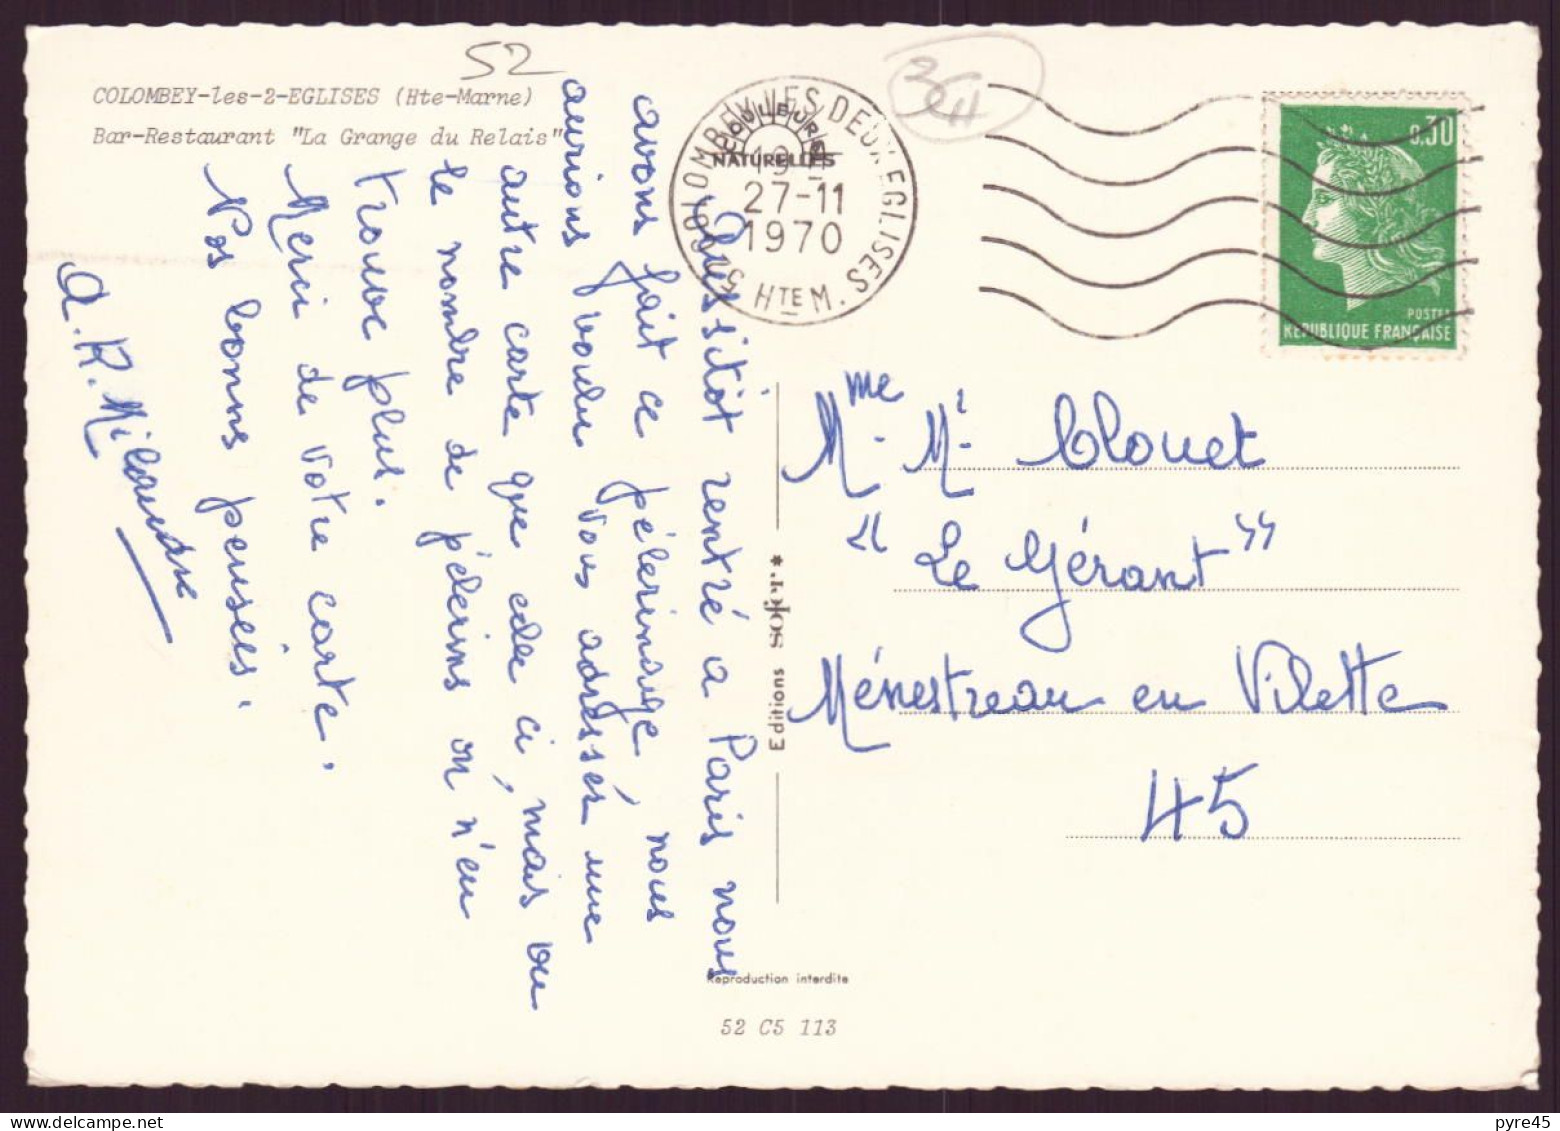 52
COLOMBEY-les-2-EGLISES (Hte-Marne)
Bar-Restaurant "La Grange du Relais"
Aussitôt rentré a Paris nous
avons fait ce pélerinage, nous
aurions voulu vous adresser une
autre carte que celle ci, mais vu
le nombre de pélerins on n'en
trouve plus.
Merci de votre carte.
Nos bonnes pensées.
COULEURS
NATURELLES
COLOMBEY LES DEUX EGLISES
27-11
1970
HTE M.
0,30
POSTES
REPUBLIQUE FRANÇAISE
Mme. Mr Clouet
"Le Gérant"
Ménestreau en Villette
45
Editions SOFER*
Reproduction interdite
52 C5 113
pyre45